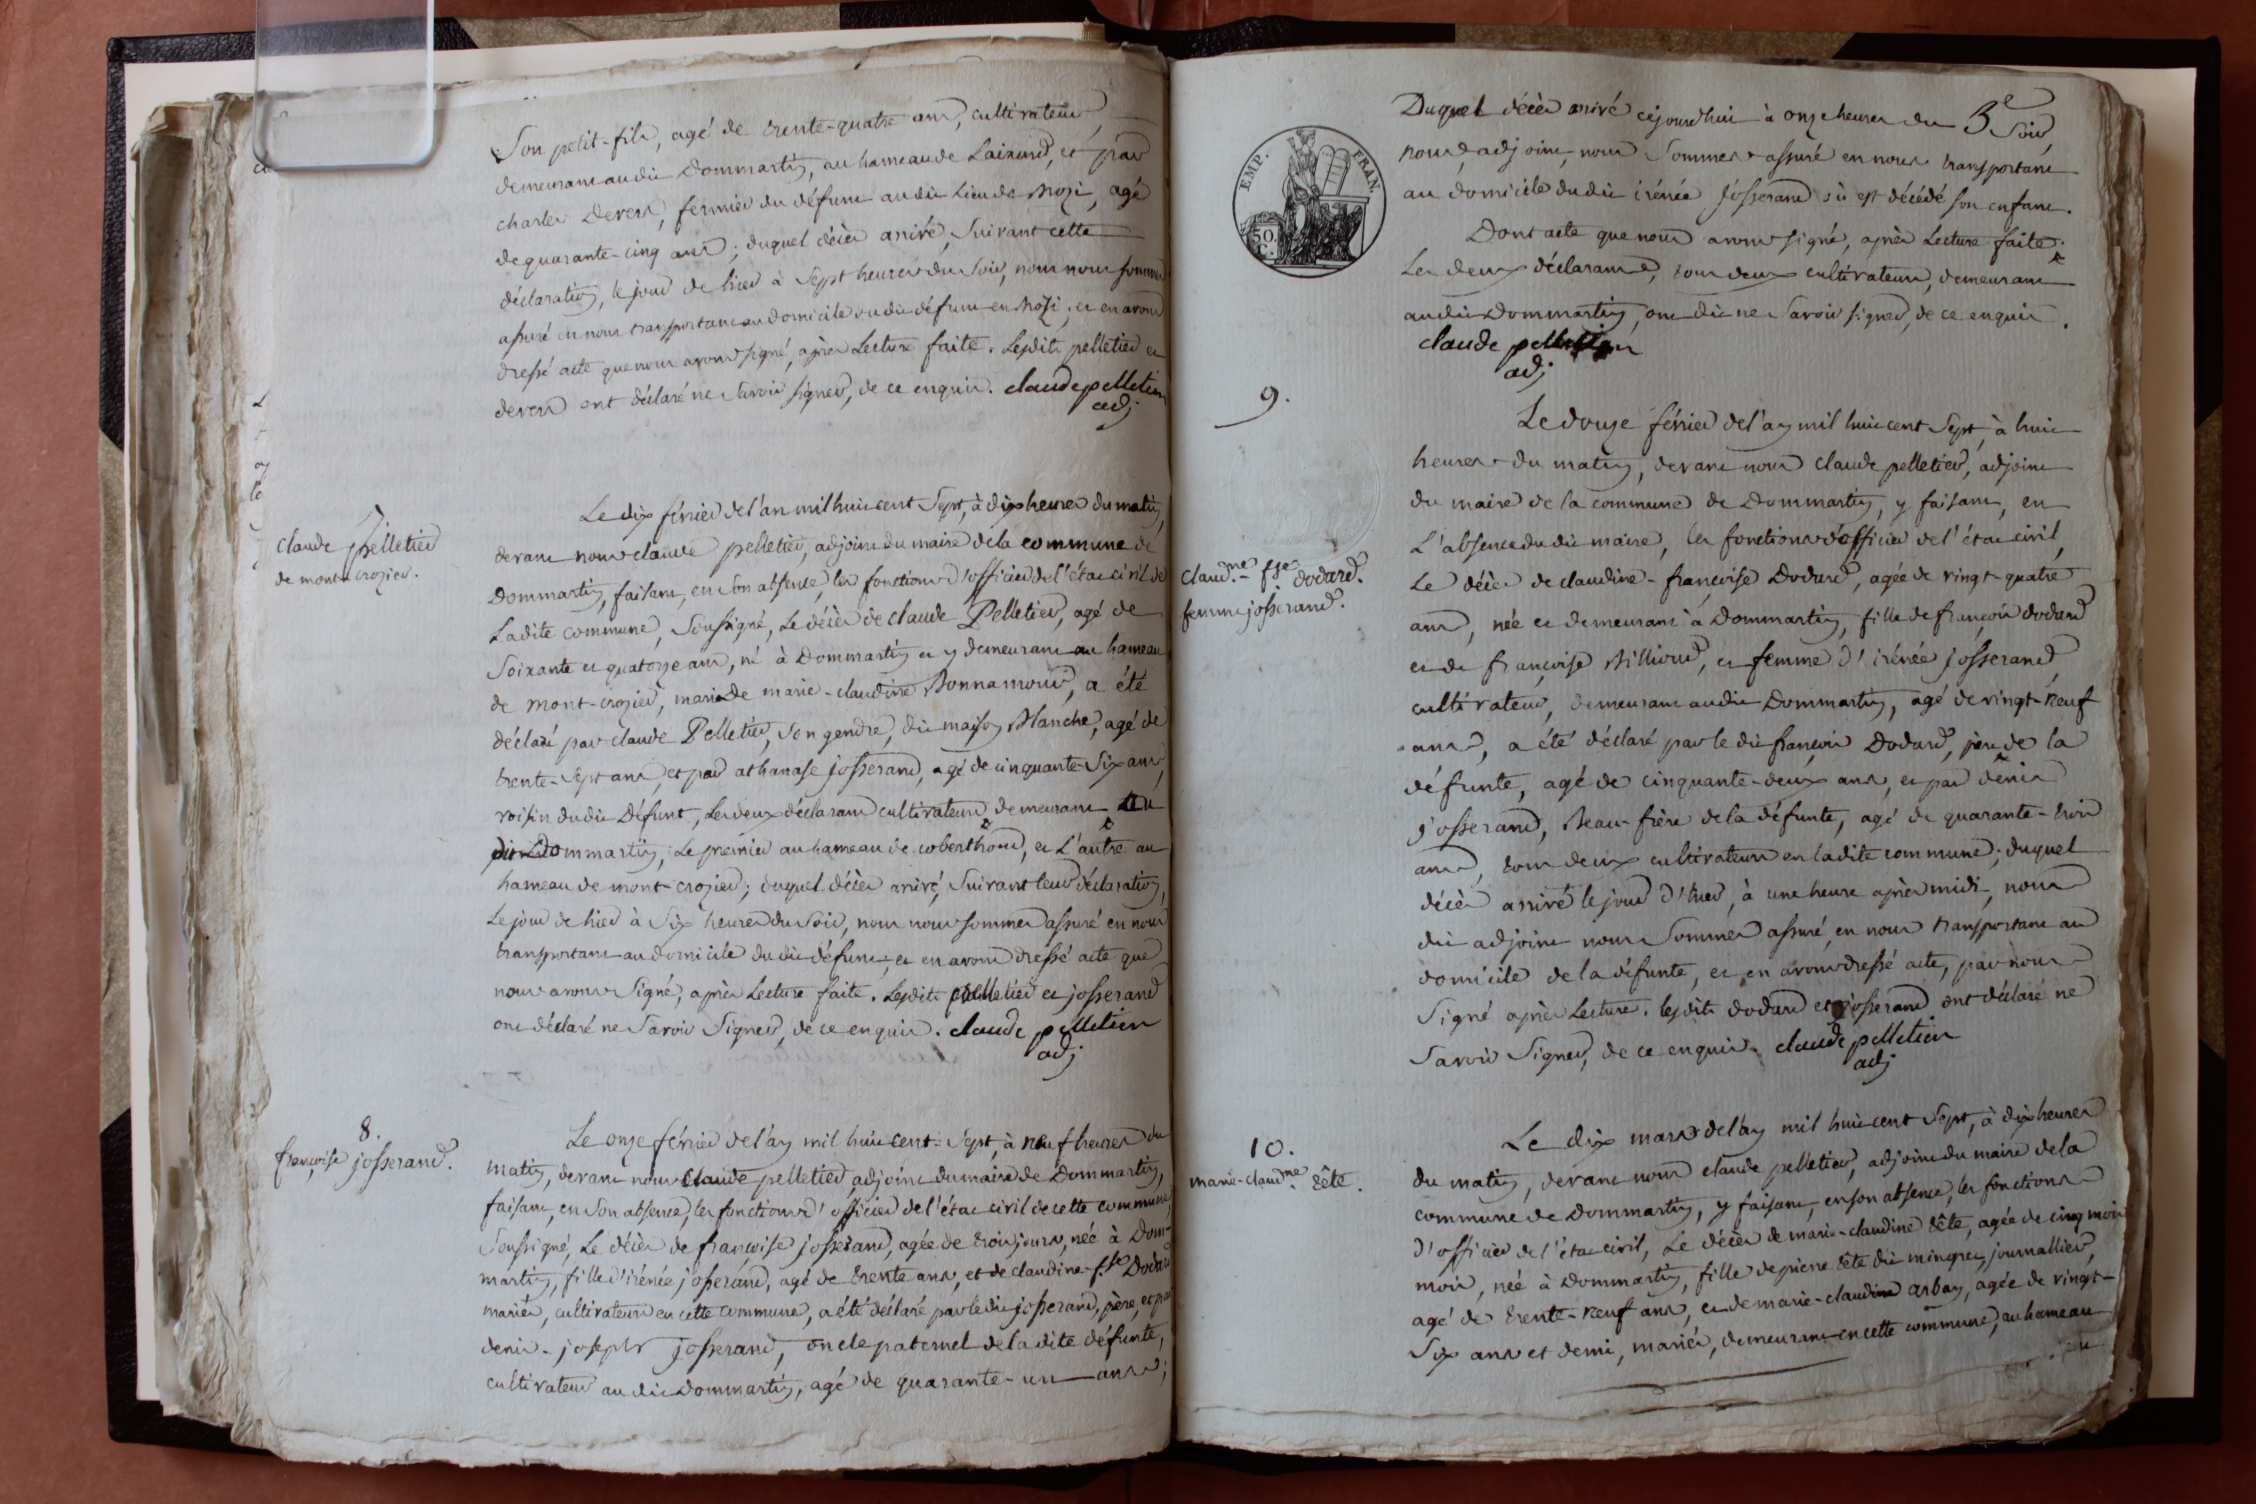 Son petit-fils, agé de trente-quatre ans, cultivateur,
demeurant audit Dommartin, au hameau de Laisard, et par
charles Devers, fermier du défunt audit Lieu de Mozi, agé
de quarante-cinq ans; duquel décès arrivé, Suivant cette
déclaration, le jour de hier à Sept heures du Soir, nous nous sommes
assuré en nous transportant au domicile dudit défunt en Mozi; et en avons
dressé acte que nous avons signé, après Lecture faite. Lesdits pelletier et
devers ont déclaré ne Savoir signer, de ce enquis. claude pelletier
adj
7
claude pelletier
de mont-crozier.
Le dix février de l'an mil huit cent Sept, à dix heures du matin,
devant nous claude pelletier, adjoint du maire de la commune de
Dommartin, faisant, en Son absence, les fonctions d'officier de l'état civil de
Ladite commune, Soussigné, Le décès de claude Pelletier, agé de
Soixante et quatorze ans, né à Dommartin et y demeurant au hameau
de mont-crozier, mari de marie-claudine Bonnamour, a été
déclaré par claude Pelletier, Son gendre, dit maison Blanche, agé de
trente-Sept ans, et par athanase josserand, agé de cinquante-Six ans,
voisin dudit Défunt, Les deux déclarans cultivateurs, demeurant au
dit Dommartin, Le premier au hameau de coberthoud, et L'autre au
hameau de mont-crozier; duquel décès arrivé, Suivant leur déclaration,
Le jour de hier à Six heures du Soir, nous nous sommes assuré en nous
transportant au domicile dudit défunt, et en avons dressé acte que
nous avons Signé, après Lecture faite. Lesdits pelletier et josserand
ont déclaré ne Savoir Signer, de ce enquis. claude pelletier
adj
8.
françoise josserand.
Le onze février de l'an mil huit cent Sept, à neuf heures du
matin, devant nous Claude pelletier, adjoint du maire de Dommartin,
faisant, en Son absence, les fonctions d'officier de l'état civil de cette commune,
Soussigné, Le décès de françoise josserand, agée de trois jours, née à Dom-
martin, fille d'irénée josserand, agé de trente ans, et de claudine-f.se Dodard
mariés, cultivateurs en cette commune, a été déclaré par ledit josserand, père, et par
denis-joseph josserand, oncle paternel de ladite défunte,
cultivateur audit Dommartin, agé de quarante-un ans;
EMP. FRAN.
50.
C.
3e
Duquel décès arrivé cejourd'hui à onze heures du Soir,
nous, adjoint, nous Sommes assuré en nous transportant
au domicile dudit irénée josserand où est décédé son enfant.
Dont acte que nous avons signé, après Lecture faite.
Les deux déclarants, tous deux cultivateurs, demeurant
audit Dommartin, ont dit ne Savoir signer, de ce enquis.
claude pelletier
adj
9.
claud.ne-f.se dodard.
femme josserand.
Le douze février de l'an mil huit cent Sept, à huit
heures du matin, devant nous claude pelletier, adjoint
du maire de la commune de Dommartin, y faisant, en
L'absence dudit maire, les fonctions d'officier de l'état civil,
Le décès de claudine-françoise Dodard, agée de vingt-quatre
ans, née et demeurant à Dommartin, fille de françois dodard
et de françoise Billioud, et femme d'irénée josserand,
cultivateur, demeurant audit Dommartin, agé de vingt-neuf
ans, a été déclaré par le dit françois Dodard, père de la
défunte, agé de cinquante-deux ans, et par denis
josserand, Beau-frère de la défunte, agé de quarante-trois
ans, tous deux cultivateurs en ladite commune; duquel
décès arrivé le jour d'hier, à une heure après midi, nous
dit adjoint nous Sommes assuré, en nous transportant au
domicile de la défunte, et en avons dressé acte, par nous
Signé après Lecture. lesdits dodard et josserand ont déclaré ne
Savoir Signer, de ce enquis. claude pelletier
adj
10.
marie-claud.ne tête.
Le dix mars de l'an mil huit cent Sept, à dix heures
du matin, devant nous claude pelletier, adjoint du maire de la
commune de Dommartin, y faisant, en son absence, les fonctions
d'officier de l'état civil, Le décès de marie-claudine tête, agée de cinq mois
mois, née à Dommartin, fille de pierre tête dit mingret, journallier,
agé de trente-neuf ans, et de marie-claudine arban, agée de vingt-
Six ans et demi, mariés, demeurant en cette commune, au hameau